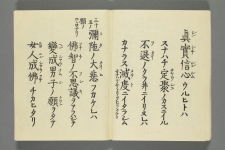 眞實信心ウルヒトハ
スナハチ定聚ノカスニイル
不退ノクラヰニイリヌレハ
カナラス滅度ニイタラシム
彌陀ノ大悲フカケレハ
佛智ノ不思議ヲアラハシテ
變成男子ノ願ヲタテ
女人成佛チカヒタリ